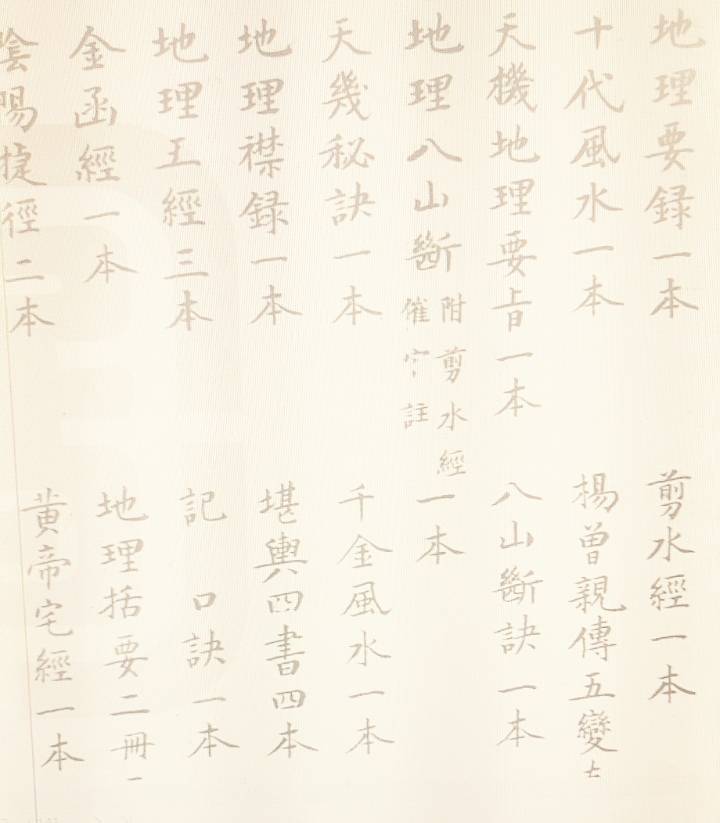 地理要録一本 剪水經一本
十代風水一本 楊曽親傳五變
天機地理要旨一本 八山斷訣一本
地理八山斷 附剪水經 催 註 一本
天幾秘訣一本 千金風水一本
地理襟録一本 堪輿四書四本
地理王經三本 記 口訣一本
金函經一本 地理括要二冊
陰陽捷徑二本 黄帝宅經一本